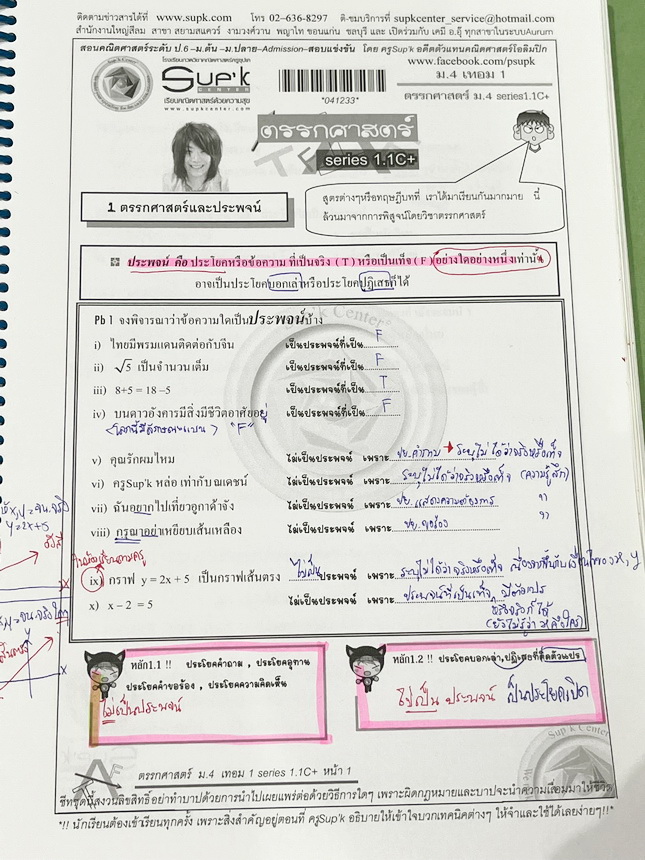 ติดตามข่าวสารได้ที่ www.supk.com โทร 02-636-8297 ติ-ชมบริการที่ supkcenter_service@hotmail.com
สำนักงานใหญ่สีลม สาขา สยามสแควร์ งามวงศ์วาน พญาไท ชอนแก่น ชลบุรี และ เปิดร่วมกับ เคมี อ.อุ๊ ทุกสาขาในระบบAurum
สอนคณิตศาสตร์ระดับ ป.6 –ม.ต้น –ม.ปลาย–Admission–สอบแข่งขัน โดย ครูSup'k อดีตตัวแทนคณิตศาสตร์โอลิมปิก
www.facebook.com/psupk
Sup'k
CENTER
เรียนคณิตศาสตร์ด้วยความสุข
www.supkcenter.com
*041233*
ม.4 เทอม 1
ตรรกศาสตร์ ม.4 series1.1C+
ตรรกศาสตร์
series 1.1C+
สูตรต่างๆหรือทฤษฎีบทที่ เราได้มาเรียนกันมากมาย นี่
ล้วนมาจากการพิสูจน์โดยวิชาตรรกศาสตร์
1 ตรรกศาสตร์และประพจน์
ประพจน์ คือ ประโยคหรือข้อความ ที่เป็นจริง ( T ) หรือเป็นเท็จ ( F ) อย่างใดอย่างหนึ่งเท่านั้น
อาจเป็นประโยคบอกเล่าหรือประโยคปฏิเสธก็ได้
Pb 1 จงพิจารณาว่าข้อความใดเป็นประพจน์บ้าง
i) ไทยมีพรมแดนติดต่อกับจีน เป็นประพจน์ที่เป็น F
ii) √5 เป็นจำนวนเต็ม เป็นประพจน์ที่เป็น F
iii) 8+5 = 18 –5 เป็นประพจน์ที่เป็น T
iv) บนดาวอังคารมีสิ่งมีชีวิตอาศัยอยู่ เป็นประพจน์ที่เป็น F
"F"
v) คุณรักผมไหม ไม่เป็นประพจน์ เพราะ ปย.คำถาม → ระบุไม่ได้ว่าจริงหรือเท็จ
vi) ครูSup'k หล่อ เท่ากับ ณเดชน์ ไม่เป็นประพจน์ เพราะ ระบุไม่ได้ว่าจริงหรือเท็จ (ความรู้สึก)
vii) ฉันอยากไปเที่ยวอูกาด้าจัง ไม่เป็นประพจน์ เพราะ ปย. แสดงความต้องการ "
viii) กรุณาอย่าเหยียบเส้นเหลือง ไม่เป็นประพจน์ เพราะ ปย. ขอร้อง "
ix) กราฟ y = 2x + 5 เป็นกราฟเส้นตรง ไม่เป็นประพจน์ เพราะ ระบุไม่ได้ว่าจริงหรือเท็จ x, y
x) x – 2 = 5 ไม่เป็นประพจน์ เพราะ
y = 2x+5
หลัก1.1 !! ประโยคคำถาม , ประโยคอุทาน
ประโยคคำขอร้อง , ประโยคความคิดเห็น
ไม่เป็นประพจน์
หลัก1.2 !! ประโยคบอกเล่า,ปฏิเสธที่ติดตัวแปร
ไม่เป็น ประพจน์ เป็นประโยคเปิด
ตรรกศาสตร์ ม.4 เทอม 1 series 1.1C+ หน้า 1
ชีทชุดนี้สงวนลิขสิทธิ์ อย่าทำบาปด้วยการนำไปเผยแพร่ต่อด้วยวิธีการใดๆ เพราะผิดกฎหมายและบาปจะนำความเสื่อมมาให้ชีวิต
*!! นักเรียนต้องเข้าเรียนทุกครั้ง เพราะสิ่งสำคัญอยู่ตอนที่ ครูSup'k อธิบายให้เข้าใจบวกเทคนิคต่างๆ ให้จำและใช้ได้เลยง่ายๆ!!*